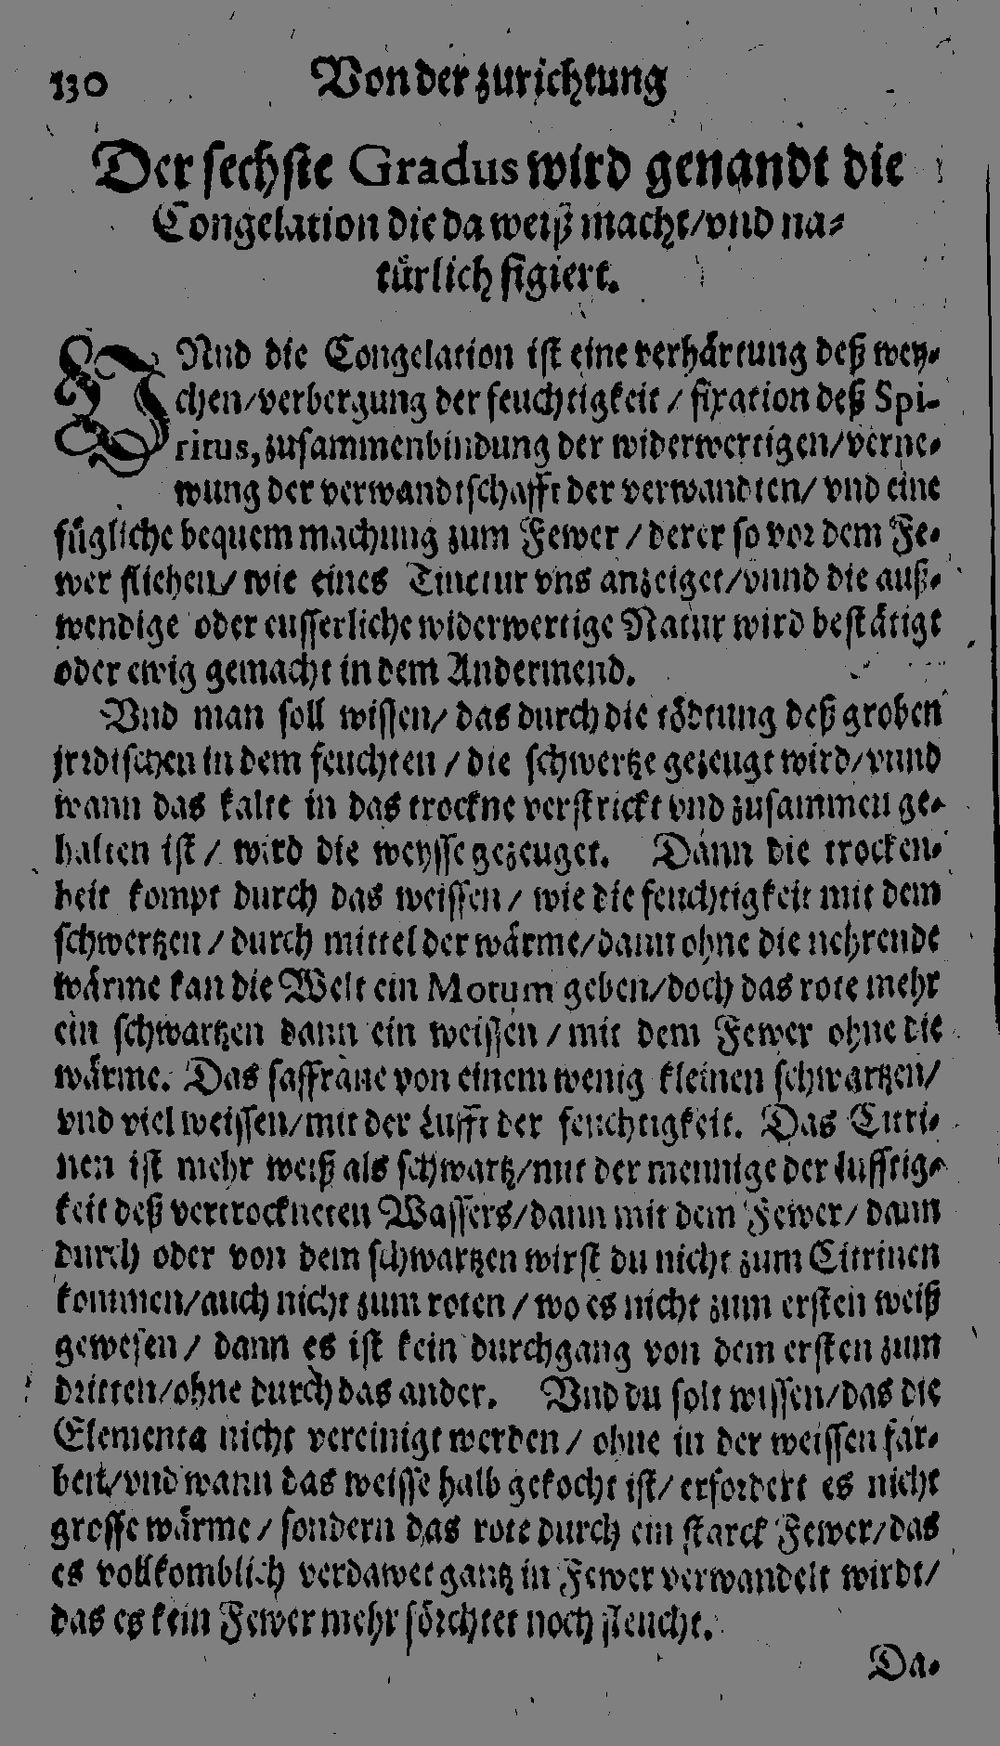 130 Von der zurichtung
Der sechste Gradus wird genandt die
Congelation die da weiß macht/vnd na-
türlich figiert.
VNnd die Congelation ist eine verhärtung deß wey-
chen/verbergung der feuchtigkeit / fixation deß Spi-
ritus, zusammenbindung der widerwertigen/verne-
wung der verwandtschafft der verwandten/ vnd eine
fügliche bequem machung zum Fewer / derer so vor dem Fe-
wer fliehen/ wie eines Tinctur vns anzeiget/vnnd die auß-
wendige oder eusserliche widerwertige Natur wird bestätigt
oder ewig gemacht in dem Andermend.
Vnd man soll wissen/ das durch die tödtung deß groben
jrrdischen in dem feuchten / die schwertze gezeugt wird/vnnd
wann das kalte in das trockne verstrickt vnd zusammen ge-
halten ist / wird die weysse gezeuget. Dann die trocken-
heit kompt durch das weissen / wie die feuchtigkeit mit dem
schwertzen / durch mittel der wärme/dann ohne die nehrende
wärme kan die Welt ein Motum geben/doch das rote mehr
ein schwartzen dann ein weissen / mit dem Fewer ohne die
wärme. Das saffrane von einem wenig kleinen schwartzen/
vnd viel weissen/mit der Lufft der feuchtigkeit. Das Citri-
nen ist mehr weiß als schwartz/mit der mennige der lufftig-
keit deß vertrockneten Wassers/dann mit dem Fewer/ dann
durch oder von dem schwartzen wirst du nicht zum Citrinen
kommen/auch nicht zum roten / wo es nicht zum ersten weiß
gewesen / dann es ist kein durchgang von dem ersten zum
dritten/ohne durch das ander. Vnd du solt wissen/das die
Elementa nicht vereinigt werden / ohne in der weissen far-
ben/vnd wann das weisse halb gekocht ist/ erfordert es nicht
grosse wärme / sondern das rote durch ein starck Fewer/das
es vollkomblich verdawet gantz in Fewer verwandelt wirdt/
das es kein Fewer mehr förchtet noch fleucht.
Da-